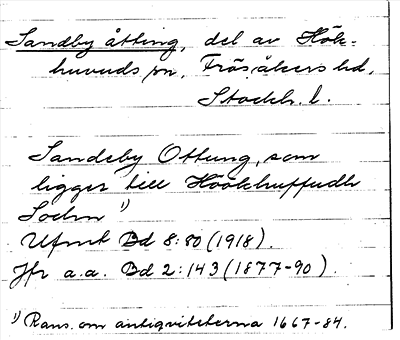 Sandby åtting, del av Hök-
huvuds sn, Frösåkers hd,
Stockh. l.
Sandeby Ottung, som
ligger till Höökhuffudh
Sochn 1)
Ufmt Bd 8:80 (1918).
Jfr a.a. Bd 2:143 (1877-90).
1) Rans. om antiqviteterna 1667-84.